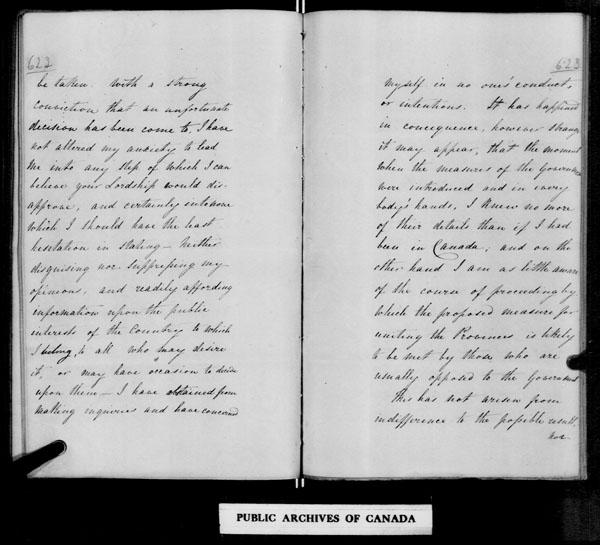 622
be taken. With a strong
conviction that an unfortunate
decision has been come to, I have
not allowed my anxiety to lead
me into any step of which I can
believe your Lordship would dis-
approve, and certainly into none
which I should have the least
hesitation in stating— Neither
disguising nor suppressing my
opinions, and readily affording
information upon the public
interests of the Country to which
I belong, to all who may desire
it, or may have occasion to decide
upon them— I have abstained from
making inquiries and have concerned
623
myself in no one's conduct,
or intentions. It has happened
in concequence, however strange
it may appear, that the moment
when the measures of the Government
were introduced and in every
body's hands, I knew no more
of their details than if I had
been in Canada, and on the
other hand I am as little aware
of the course of proceeding by
which the proposed measure for
uniting the Provinces is likely
to be met by those who are
usually opposed to the Government
This has not arisen from
indifference to the possible result,
nor
PUBLIC ARCHIVES OF CANADA